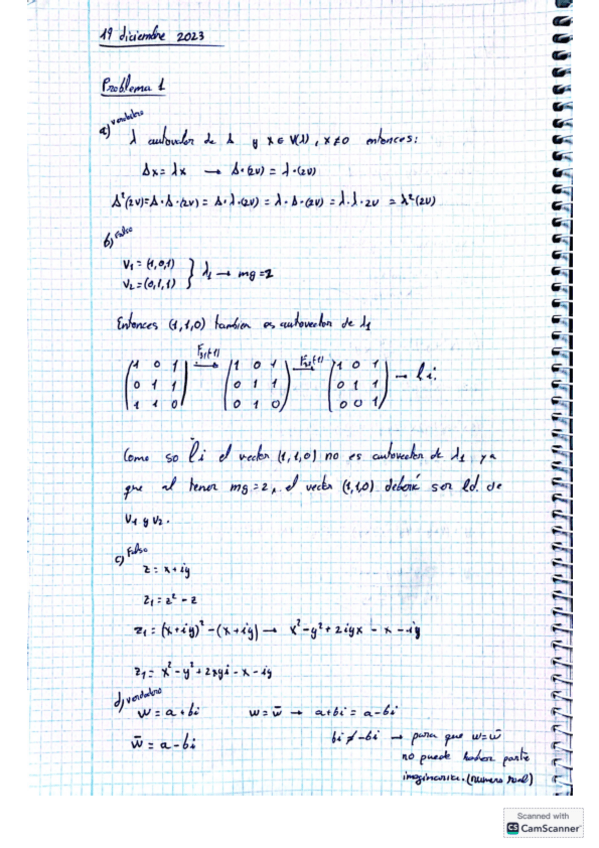 19 diciembre 2023
Problema 1
a) verdadero
λ autovalor de A y x ∈ V(λ), x ≠ 0 entonces:
Ax = λx → A·(2v) = λ·(2v)
A²(2v) = A·A·(2v) = A·λ·(2v) = λ·A·(2v) = λ·λ·2v = λ²(2v)
b) Falso
V₁ = (1,0,1)
V₂ = (0,1,1) } λ₁ → mg = 2
Entonces (1,1,0) tambien es autovector de λ₁
(1 0 1) F₃₁(-1) (1 0 1) F₃₂(-1) (1 0 1)
(0 1 1) → (0 1 1) → (0 1 1) → li.
(1 1 0) (0 1 0) (0 0 1)
Como so li el vector (1,1,0) no es autovector de λ₁ ya
que al tener mg = 2, el vector (1,1,0) deberá ser l.d. de
V₁ y V₂.
c) Falso
z = x + iy
z₁ = z² - z
z₁ = (x+iy)² - (x+iy) → x² - y² + 2iyx - x - iy
z₁ = x² - y² + 2xyi - x - iy
d) verdadero
w = a + bi w = w̄ → a + bi = a - bi
w̄ = a - bi bi ≠ -bi → para que w = w̄
no puede haber parte
imaginaria. (numero real)
Scanned with
CS CamScanner